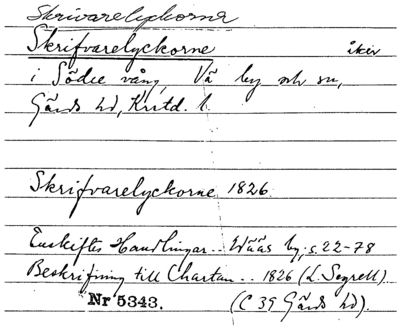 Skrivarelyckorna
Skrifvarelyckorne åker
i Södre vång, Vä by och sn,
Gärds hd, Kristd. l.
Skrifvarelyckorne 1826.
Enskiftes Handlingar .. Wääs by, s. 22-78
Beskrifning till Chartan .. 1826 (L. Segrell)
Nr 5343. (C 39 Gärds hd).